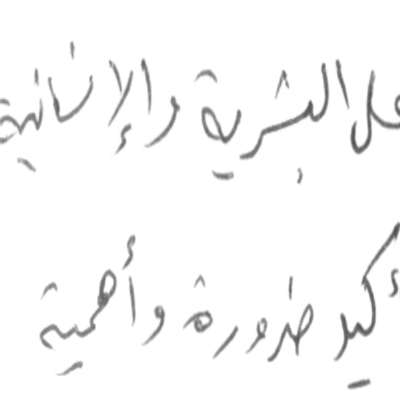 على البشرية والإنسانية
أكيد ضرورة وأهمية